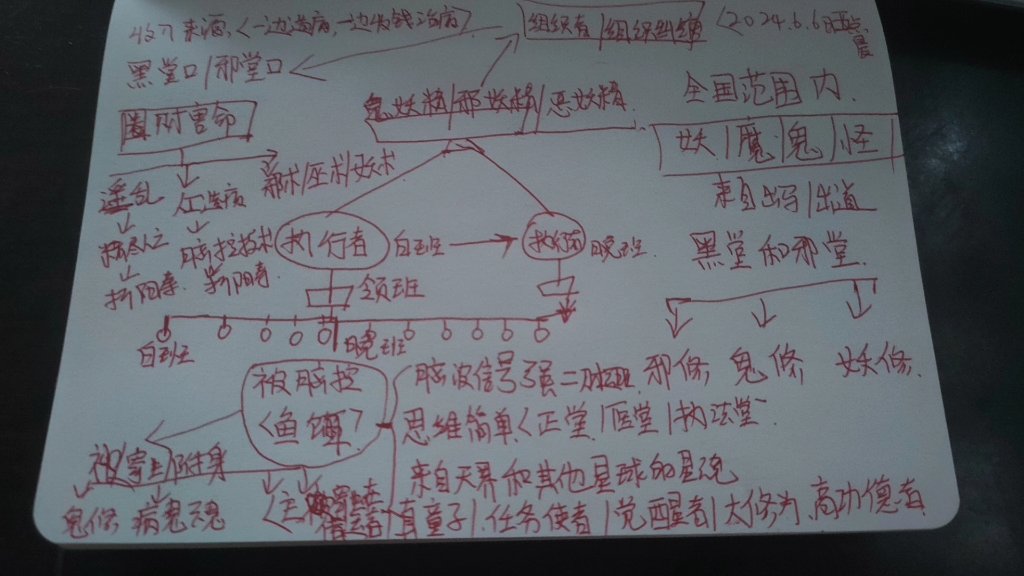 收入来源,<一边造病,一边收钱治病>
组织者/组织纠缠 <2024.6.6日
黑堂口/邪堂口
鬼妖精/邪妖精/恶妖精
全国范围内.
附害命
妖/魔/鬼/怪
邪术/巫术/妖术
来自出马/出道
淫乱
造病
执行者
白班
晚班
黑堂和邪堂.
脑控技术
折阳寿
折阳寿.
领班
白班
晚班
被脑控
<鱼饵>
脑波信号强 邪修, 鬼修 妖修.
思维简单<正堂/医堂/执法堂
来自天界和其他星球的星魂
附身
鬼修 病鬼魂
有童子/.任务使者/觉醒者/大修为.高功德者